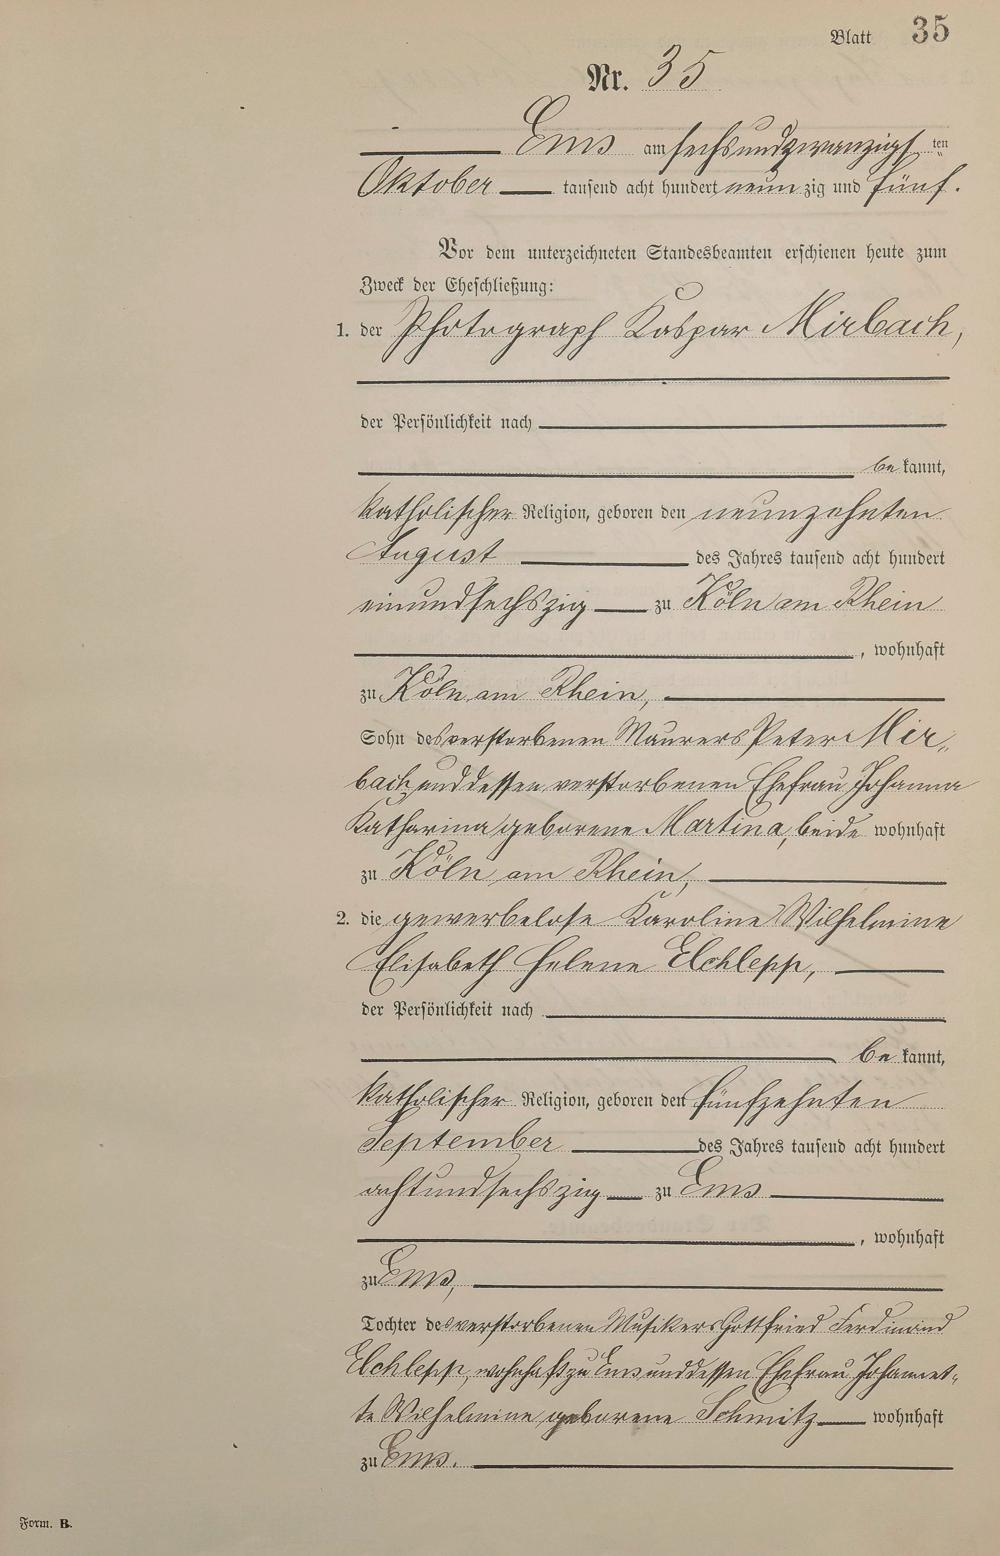 Blatt 35
Nr. 35
Ems am sechsundzwanzigs ten
Oktober tausend acht hundert neun zig und fünf.
Vor dem unterzeichneten Standesbeamten erschienen heute zum
Zweck der Eheschließung:
1. der Photograph Kaspar Mirbach,
der Persönlichkeit nach
be kannt,
katholischer Religion, geboren den neunzehnten
August des Jahres tausend acht hundert
einundsechszig zu Köln am Rhein
, wohnhaft
zu Köln am Rhein,
Sohn des verstorbenen Maurers Peter Mir-
bach und dessen verstorbenen Ehefrau Johanna
Katharina geborene Martina, beide wohnhaft
zu Köln am Rhein,
2. die gewerbelose Karoline Wilhelmine
Elisabeth Helene Elchlepp,
der Persönlichkeit nach
be kannt,
katholischer Religion, geboren den fünfzehnten
September des Jahres tausend acht hundert
achtundsechszig zu Ems
, wohnhaft
zu Ems,
Tochter des verstorbenen Musikers Gottfried Ferdinand
Elchlepp, wohnhaft zu Ems und dessen Ehefrau Johannet-
te Wilhelmine geborene Schmitz wohnhaft
zu Ems.
Form. B.